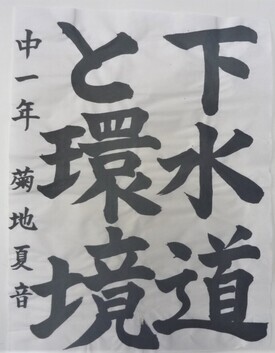 下水道
と環境
中一年 菊地夏音